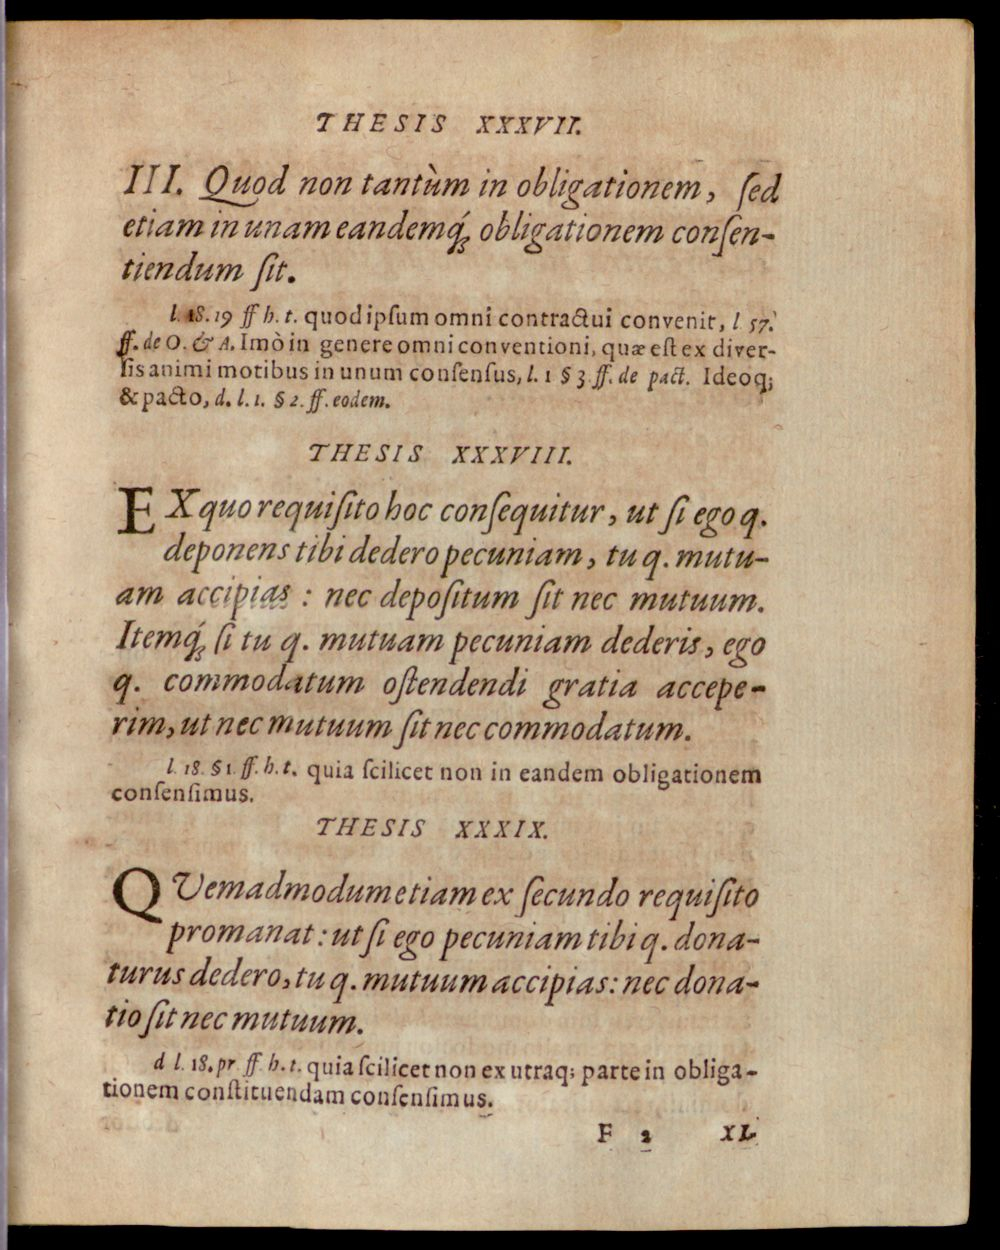 THESIS XXXVII.
III. Quod non tantùm in obligationem, ſed
etiam in unam eandemq́; obligationem conſen-
tiendum ſit.
l. 18. 19 ff h. t. quod ipſum omni contractui convenit, l 57.
ff. de O. & A. Imò in genere omni conventioni, quæ eſt ex diver-
ſis animi motibus in unum conſenſus, l. 1 § 3 ff. de pact. Ideoq;
& pacto, d. l. 1. § 2. ff. eodem.
THESIS XXXVIII.
EX quo requiſito hoc conſequitur, ut ſi ego q.
deponens tibi dedero pecuniam, tu q. mutu-
am accipias : nec depoſitum ſit nec mutuum.
Itemq́; ſi tu q. mutuam pecuniam dederis, ego
q. commodatum oſtendendi gratia accepe-
rim, ut nec mutuum ſit nec commodatum.
l. 18. § 1. ff. h. t. quia ſcilicet non in eandem obligationem
conſenſimus.
THESIS XXXIX.
QVemadmodum etiam ex ſecundo requiſito
promanat : ut ſi ego pecuniam tibi q. dona-
turus dedero, tu q. mutuum accipias : nec dona-
tio ſit nec mutuum.
d l. 18. pr ff. h. t. quia ſcilicet non ex utraq; parte in obliga-
tionem conſtituendam conſenſimus.
F 2 XL